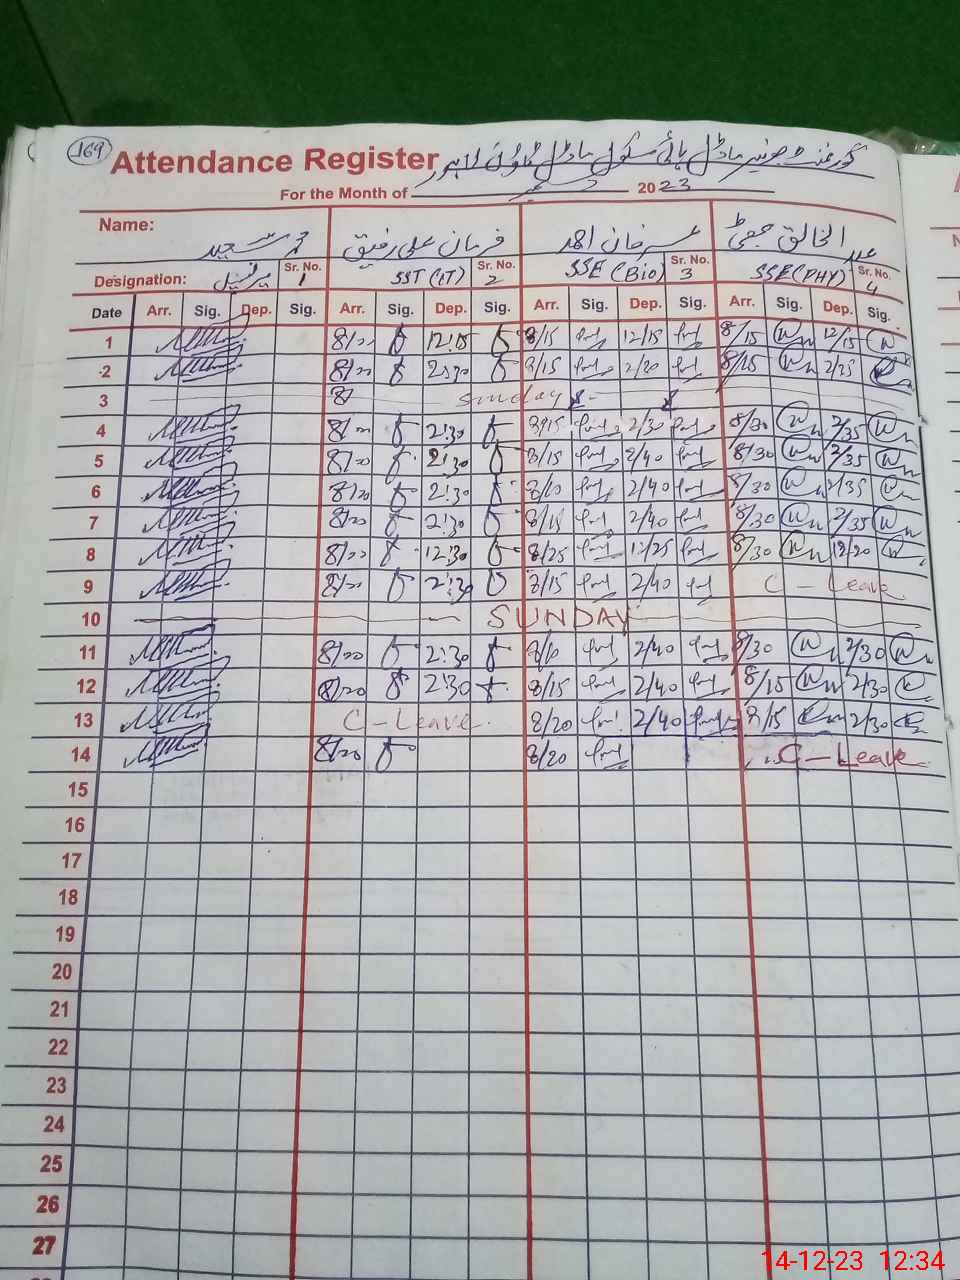 169
Attendance Register گورنمنٹ جونیئر ماڈل ہائی سکول ماڈل ٹاؤن لاہور
For the Month of دسمبر 2023
Name: محمد سعید فرمان علی رفیق خان احمد عبد الخالق
Designation: پرنسپل Sr. No. 1 SST (IT) Sr. No. 2 SSE (Bio) Sr. No. 3 SSE (PHY) Sr. No. 4
Date Arr. Sig. Dep. Sig. Arr. Sig. Dep. Sig. Arr. Sig. Dep. Sig. Arr. Sig. Dep. Sig.
1 12:15 8/15 12/15 8/15 12/15
2 8/20 2:30 8/15 2/20 8/25 2/25
3 Sunday
4 2:30 8/15 2/30 8/30 2/35
5 8/20 2:30 8/15 2/40 8/30 2/35
6 8/20 2:30 8/10 2/40 8/30 2/35
7 8/20 2:30 8/15 2/40 8/30 2/35
8 12:30 8/25 12/25 8/30 12/20
9 2:30 8/15 2/40 C - Leave
10 SUNDAY
11 8/20 2:30 8/10 2/40 8/30 2/30
12 8/20 2:30 8/15 2/40 8/15 2/30
13 C - Leave 8/20 2/40 8/15 2/30
14 8/20 8/20 C - Leave
15
16
17
18
19
20
21
22
23
24
25
26
27
14-12-23 12:34